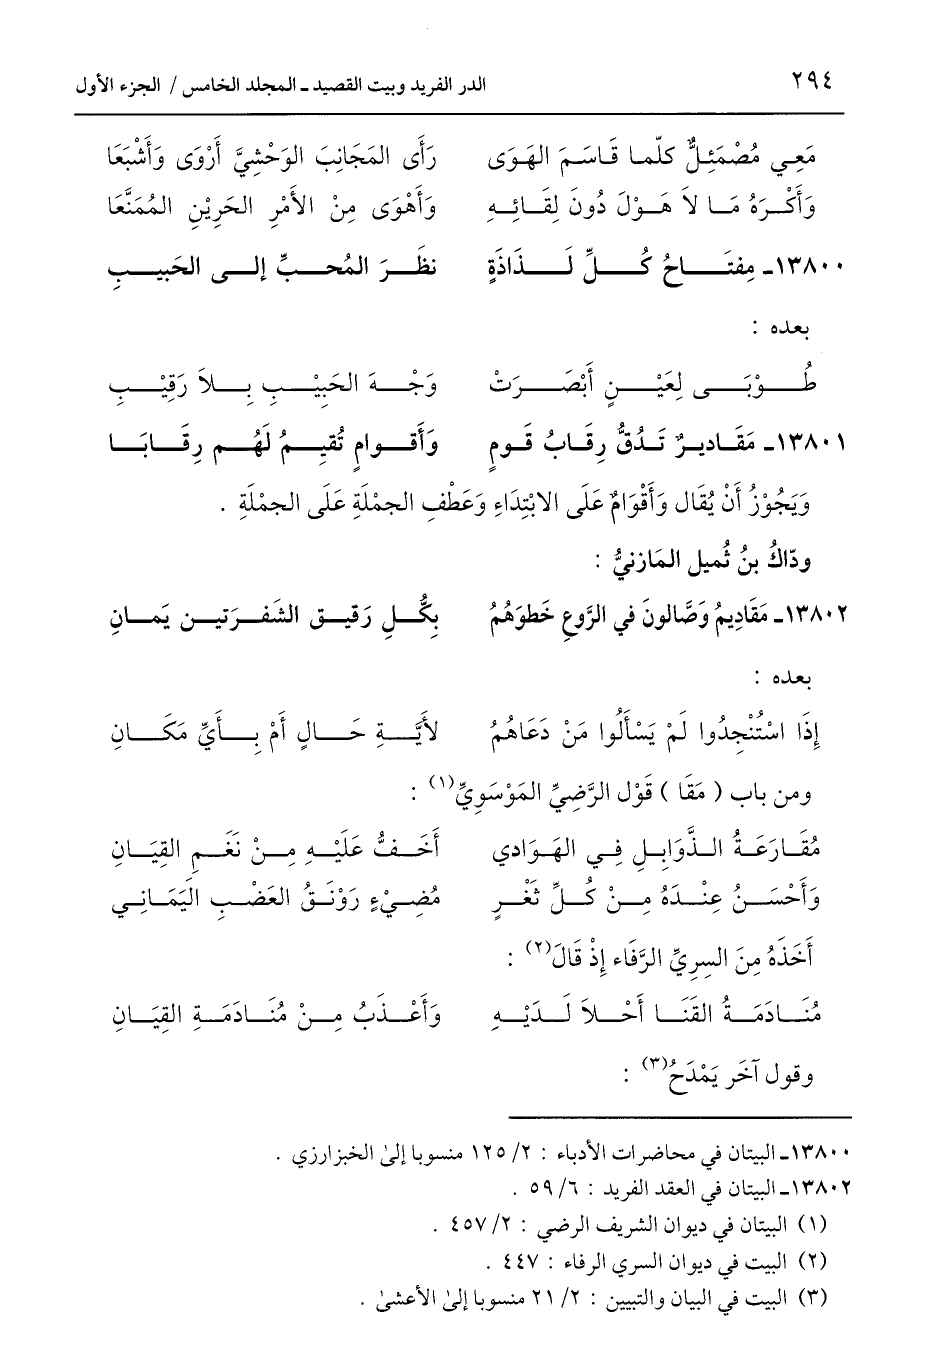 ٢٩٤ الدر الفريد وبيت القصيد ـ المجلد الخامس / الجزء الأول
مَعِي مُصْمَئِلٌّ كلّما قَاسَمَ الهَوَى رَأَى المَجَانِبَ الوَحْشِيَّ أَرْوَى وَأَشْبَعَا
وَأَكْرَهُ مَا لاَ هَوْلَ دُونَ لِقَائِهِ وَأَهْوَى مِنْ الأَمْرِ الحَرِيْنِ المُمَنَّعَا
١٣٨٠٠ـ مِفتَاحُ كُلِّ لَذَاذَةٍ نظَرَ المُحبِّ إلى الحَبيبِ
بعده :
طُوْبَى لِعَيْنٍ أَبْصَرَتْ وَجْهَ الحَبِيْبِ بِلاَ رَقِيْبِ
١٣٨٠١ـ مَقَاديرٌ تَدُقُّ رِقَابُ قَومٍ وَأَقوامٍ تُقيمُ لَهُم رِقَابَا
وَيَجُوْزُ أَنْ يُقَال وَأَقْوَامٌ عَلَى الابْتِدَاءِ وَعَطْفِ الجمْلَةِ عَلَى الجمْلَةِ .
ودّاكُ بنُ ثُميل المَازنيُّ :
١٣٨٠٢ـ مَقَادِيمُ وَصَّالونَ في الرَّوعِ خَطوَهُمُ بِكُّلِ رَقيق الشَفرَتين يَمانِ
بعده :
إِذَا اسْتُنْجِدُوا لَمْ يَسْأَلُوا مَنْ دَعَاهُمُ لأَيَّةِ حَالٍ أَمْ بِأَيِّ مَكَانِ
ومن باب ( مَقَا ) قَوْل الرَّضِيِّ المَوْسَوِيِّ(١) :
مُقَارَعَةُ الذَّوَابِلِ فِي الهَوَادِي أَخَفُّ عَلَيْهِ مِنْ نَغَمِ القِيَانِ
وَأَحْسَنُ عِنْدَهُ مِنْ كُلِّ ثَغْرٍ مُضِيْءٍ رَوْنَقُ العَضْبِ اليَمَانِي
أَخَذَهُ مِنَ السِريِّ الرَّفَاء إِذْ قَالَ(٢) :
مُنَادَمَةُ القَنَا أَحْلاَ لَدَيْهِ وَأَعْذَبُ مِنْ مُنَادَمَةِ القِيَانِ
وقول آخَر يَمْدَحُ(٣) :
١٣٨٠٠ـ البيتان في محاضرات الأدباء : ٢/ ١٢٥ منسوبا إلىٰ الخبزارزي .
١٣٨٠٢ـ البيتان في العقد الفريد : ٦/ ٥٩ .
(١) البيتان في ديوان الشريف الرضي : ٢/ ٤٥٧ .
(٢) البيت في ديوان السري الرفاء : ٤٤٧ .
(٣) البيت في البيان والتبيين : ٢/ ٢١ منسوبا إلىٰ الأعشىٰ .